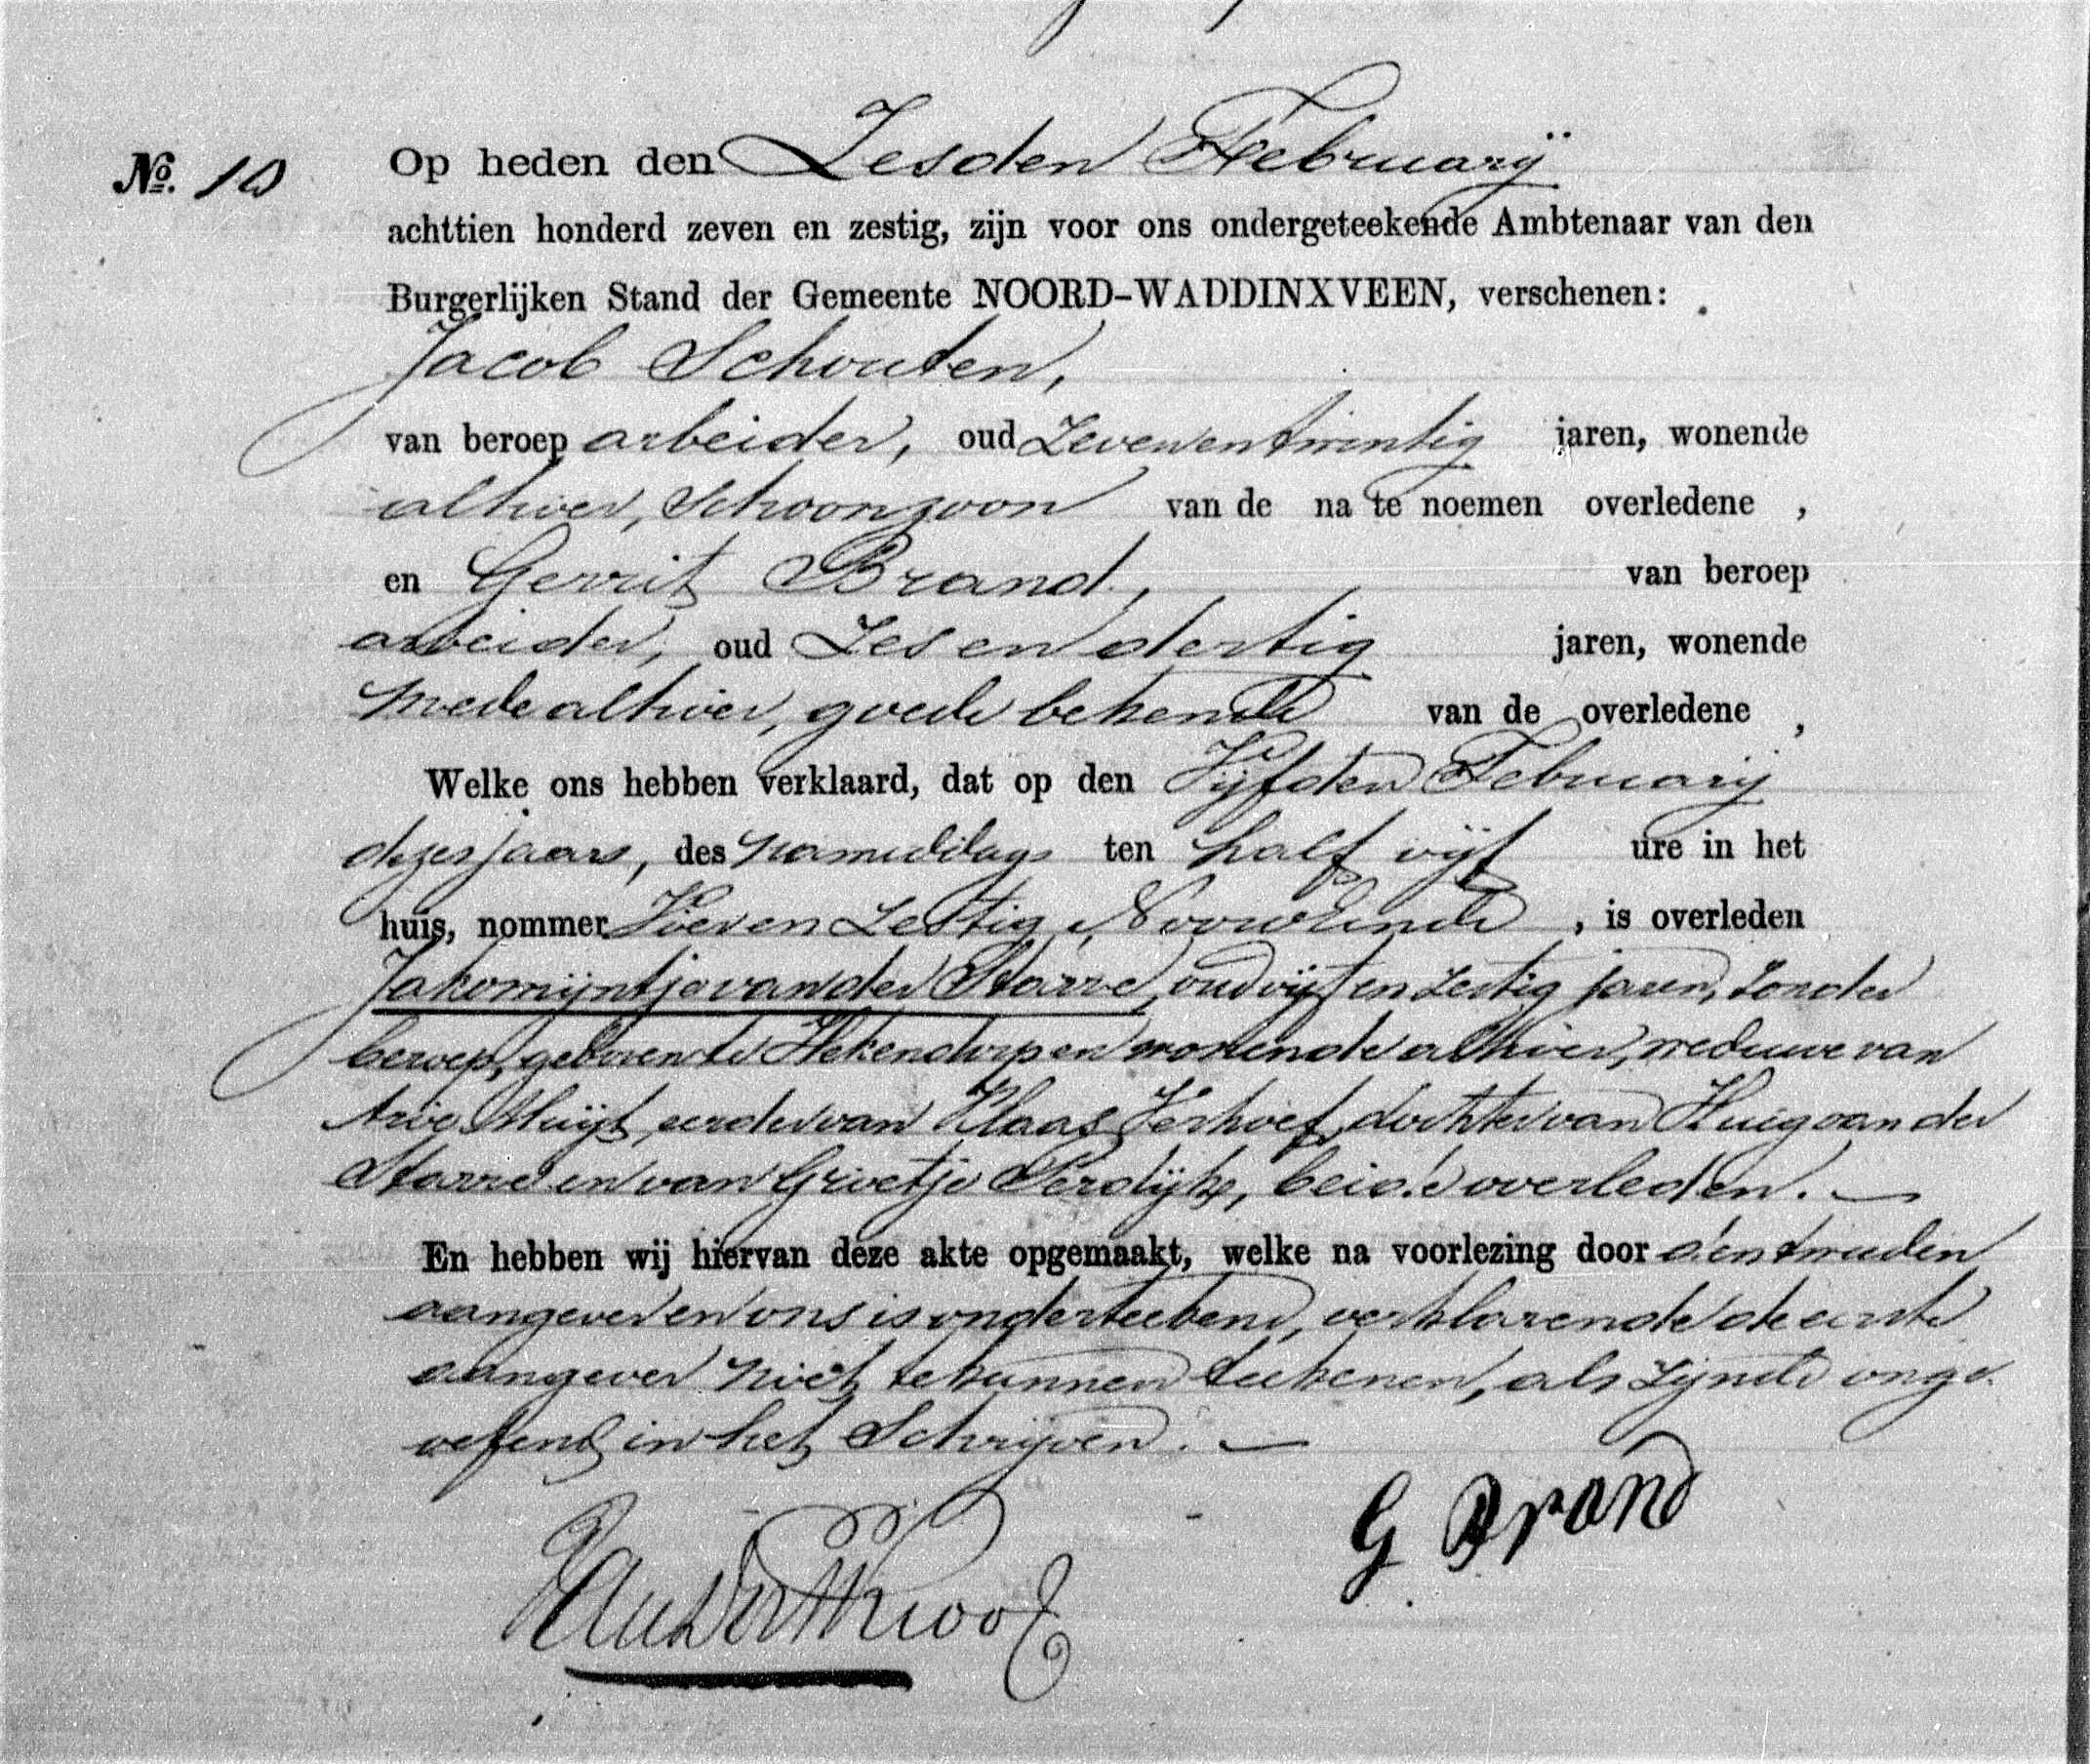 No. 10
Op heden den Zesden February
achttien honderd zeven en zestig, zijn voor ons ondergeteekende Ambtenaar van den
Burgerlijken Stand der Gemeente NOORD-WADDINXVEEN, verschenen:
Jacob Schouten,
van beroep arbeider, oud Zevenentwintig jaren, wonende
alhier, Schoonzoon van de na te noemen overledene ,
en Gerrit Brand, van beroep
arbeider, oud Zes en dertig jaren, wonende
mede alhier, goede bekende van de overledene ,
Welke ons hebben verklaard, dat op den Vijfden February
dezes jaars, des namiddags ten half vijf ure in het
huis, nommer Vier en Zestig, Noordeinde , is overleden
Jakomijntje van der Starre, oud vijf en zestig jaren, zonder
beroep, geboren te Hekendorp en wonende alhier, weduwe van
Arie Muijt, eerder van Klaas Verhoef, dochter van Huig van der
Starre en van Grietje Verdijk, beide overleden. —
En hebben wij hiervan deze akte opgemaakt, welke na voorlezing door den tweeden
aangever en ons is onderteekend, verklarende de eerste
aangever niet te kunnen teekenen, als zijnde onge-
oefend in het Schrijven. —
G Brand